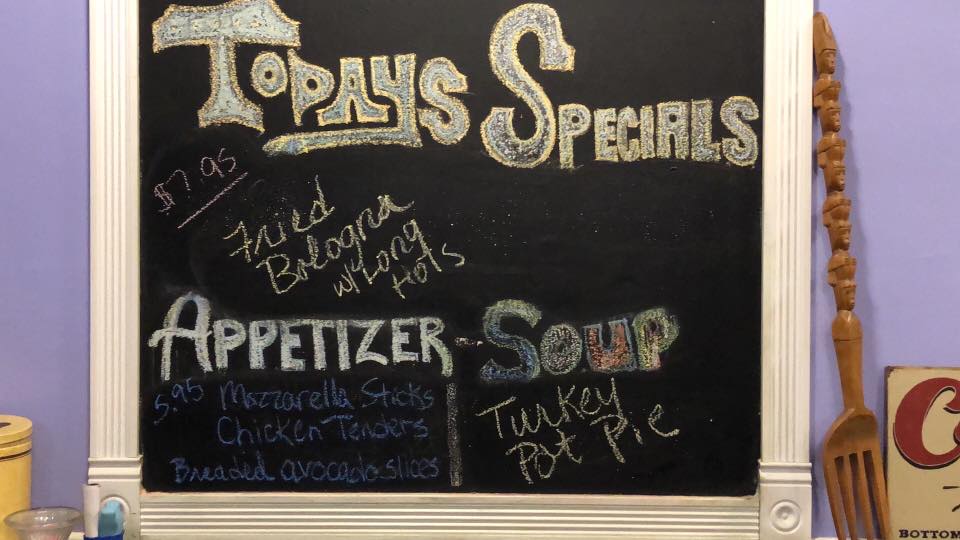 Todays Specials
$7.95
Fried
Bologna
w/Long
Hots
Appetizer - Soup
5.95 Mozzarella Sticks
Chicken Tenders
Breaded avocado slices
Turkey
Pot Pie
C
BOTTOM